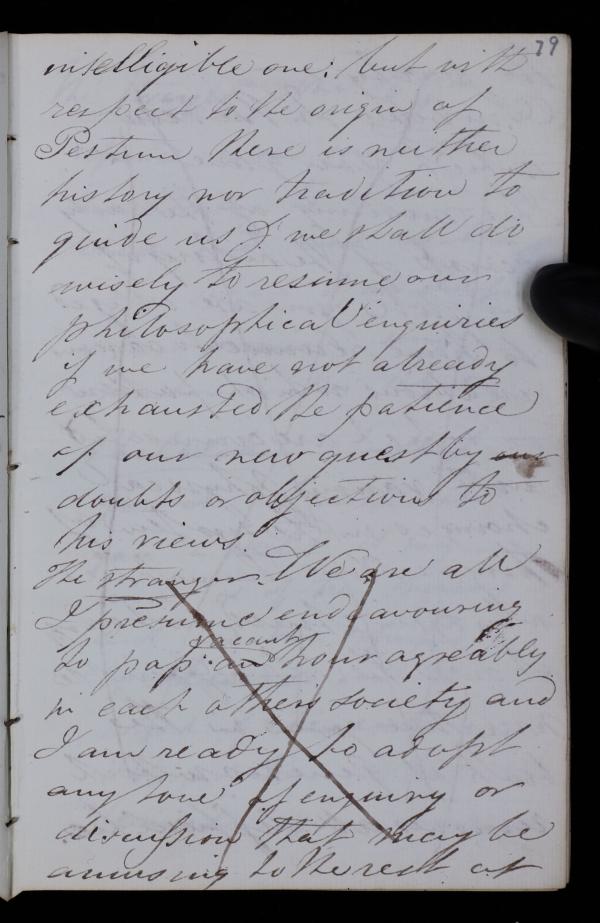 79
intelligible one: but with
respect to the origin of
Pestum there is neither
history nor tradition to
guide us & we shall do
wisely to resume our
philosophical enquiries
if we have not already
exhausted the patience
of our new guest by our
doubts or objections to
his views.
The stranger. We are all
I presume endeavouring
vacant
to pass an hour agreably
in each others society and
I am ready to adopt
any of enquiry or
discussion that may be
amusing to the rest of